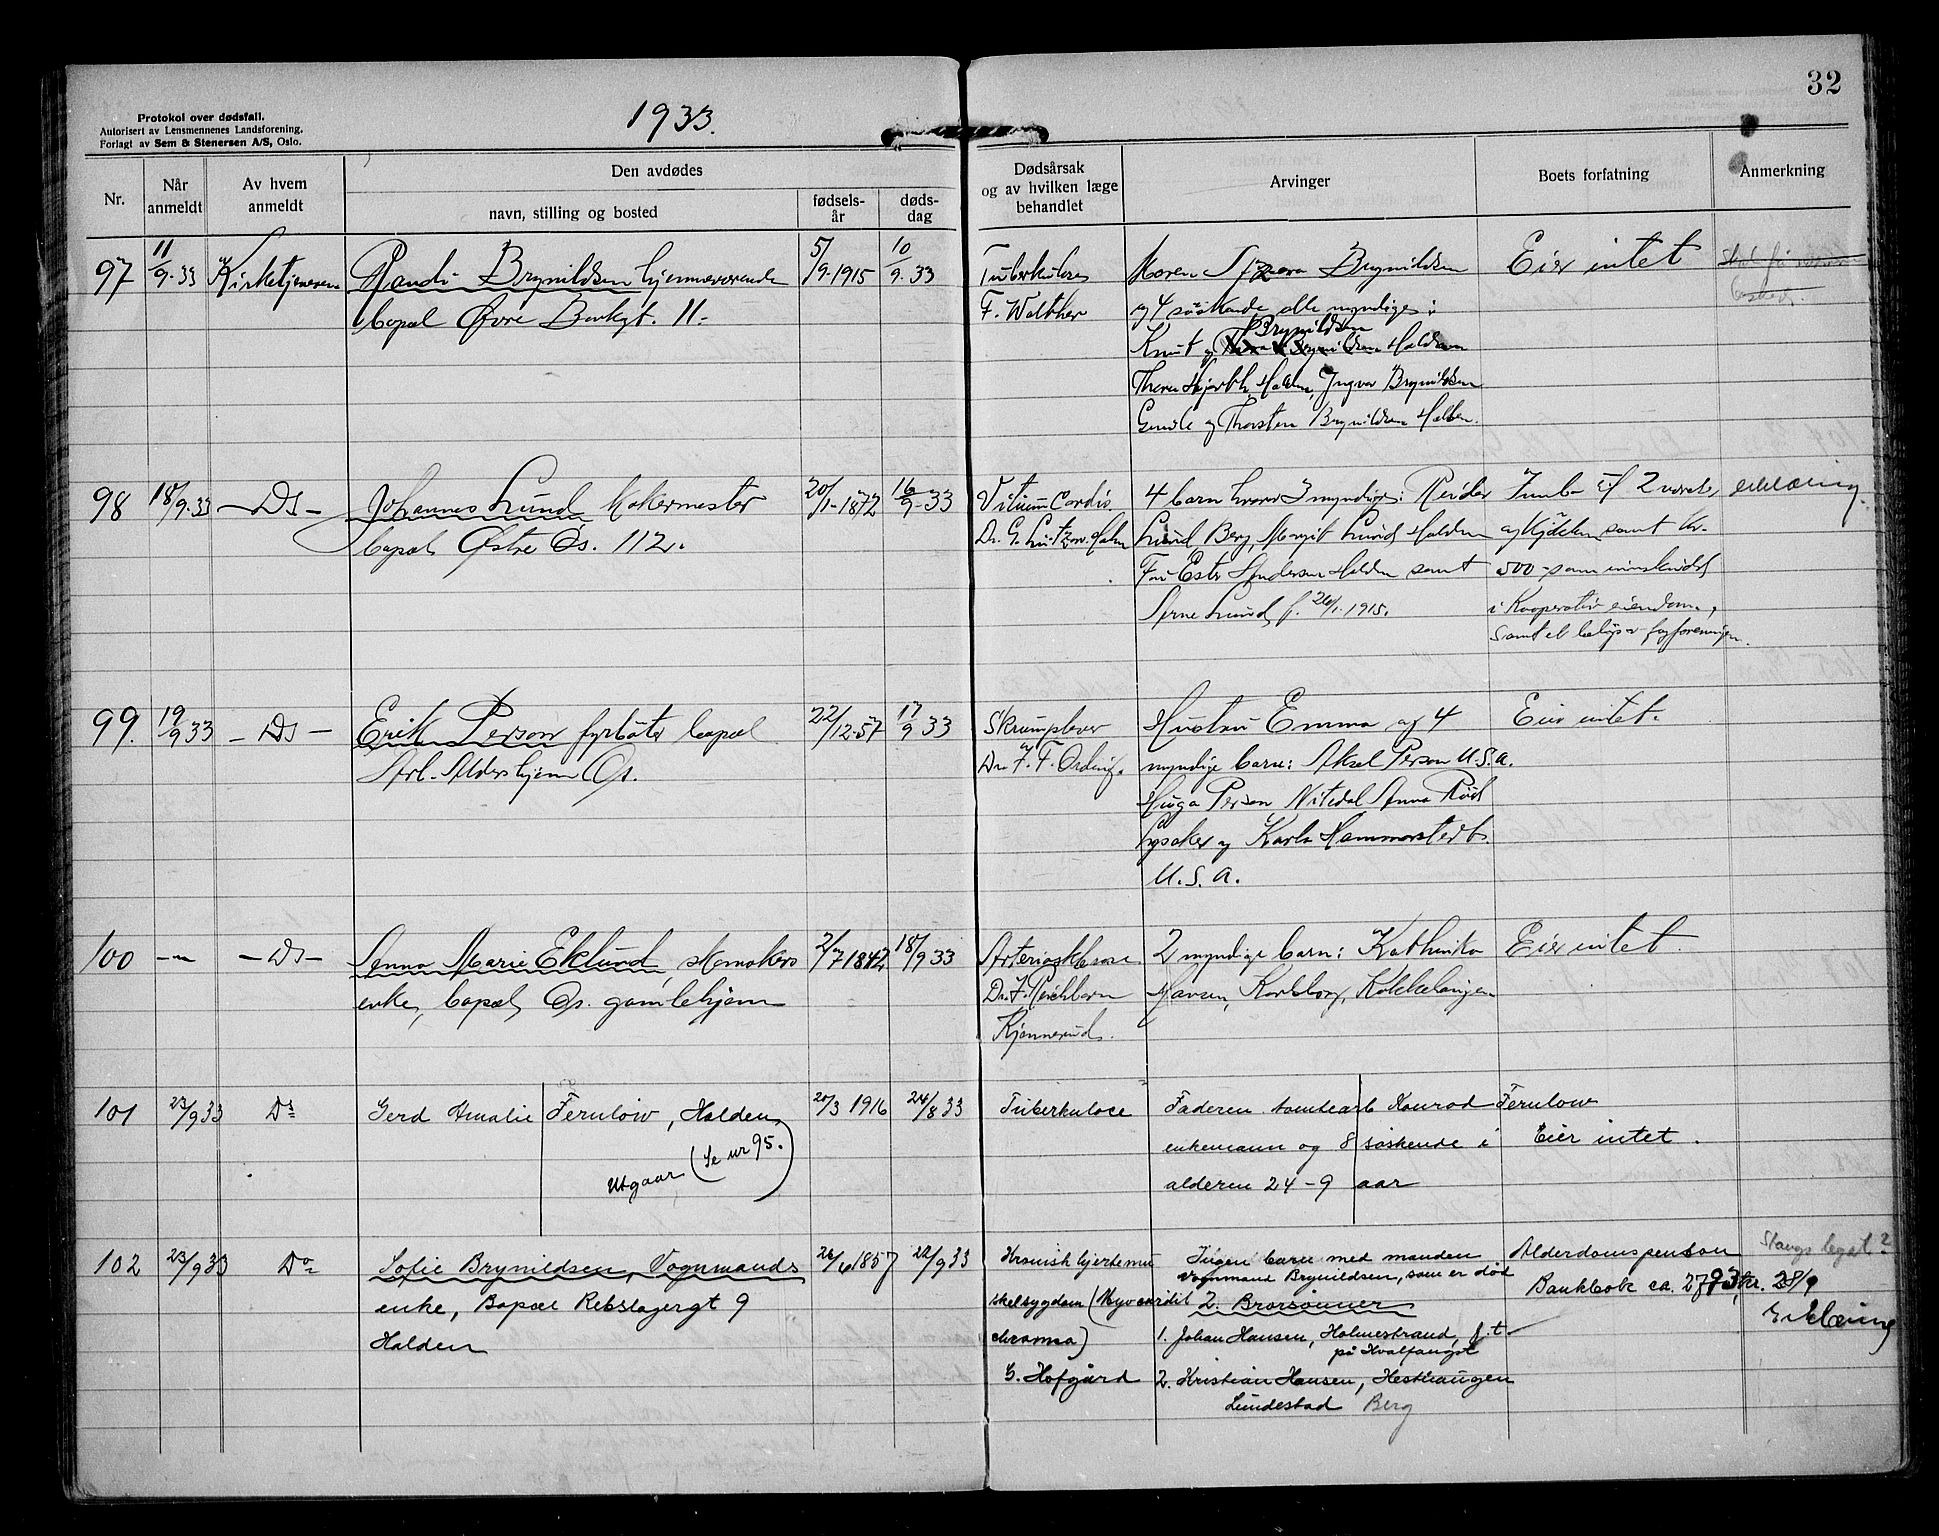 32
1933.
Protokol over dødsfall.
Autorisert av Lensmennenes Landsforening.
Forlagt av Sem & Stenersen A/S, Oslo.
Nr.
Når anmeldt
Av hvem anmeldt
Den avdødes
navn, stilling og bosted
fødselsår
dødsdag
Dødsårsak og av hvilken læge behandlet
Arvinger
Boets forfatning
Anmerkning
97 11/9-33 Kirketjeneren Randi Brynildsen hjemmeværende 5/9-1915 10/9-33 Tuberkulose Moren Brynildsen Eier intet
bopæl Øvre Bankgt. 11. F. Walther og 4 søskende alle myndige:
Brynildsen
Knut og Halden
Thora Halden, Ingvar Brynildsen
og Thorsten Brynildsen Halden.
98 18/9-33 - Ds - Johannes Lund Makermester 20/1-1872 16/9-33 Vitium Cordis 4 barn hvorav 3 myndige: Reidar Innbo i 2 værelse erklæring
bopæl Østre Ős. 112. Dr. G. Lützow Holm Lund Berg, Margit Lund Halden og kjøkken samt kr.
Fru Ester Andersen Halden samt 500 - som innskudd
Arne Lund f. 26/1. 1915. i Kooperativ eiendom,
samt et beløp i fagforeningen.
99. 19/9 33 - Ds - Erik Person fyrbøter bopæl 22/12-57 17/9 33 Skrumplever Hustru Emma og 4 Eier intet.
Arb. Aldershjem Os. Dr. F. F. Ording. myndige barn: Aksel Person U.S.A.
Hugo Person Nitedal Anna Rød
Lysaker og Karla Hammarstedt
U.S.A.
100 - " - - Ds - Anna Marie Eklund, skomakers 2/7 1842 18/9 33 Arteriosklerose 2 myndige barn: Kathinka Eier intet
enke, bopæl Os. gamlehjem Dr. F. Hansen, Karlsborg, Kokkelangen
Kjønnerud.
101 23/9 33 Ds Gerd Amalie Fernlöw, Halden 20/3 1916 24/8 33 Tuberkulose Faderen tomtearb Konrad Fernlow
Utgaar (Se nr 95.) enkemann og 8 søskende i Eier intet.
alderen 24-9 aar
102 23/9 33 Do Sofie Brynildsen, Vognmands 26/6 1857 22/9 33 Kronisk hjertemu Ingen barn med manden Alderdomspension Stangs legat?
vognmand Brynildsen, som er død
enke, Bopæl Rebslagergt 9 skelsygdom (Myocardit 2. Brorsønner Bankbok ca. 2793 kr. 28/9
Halden chronica) 1. Johan Hansen, Holmestrand, f.t. Erklæring
på Hvalfangst
G. Hofgård 2. Kristian Hansen, Hesthaugen
Lundestad Berg